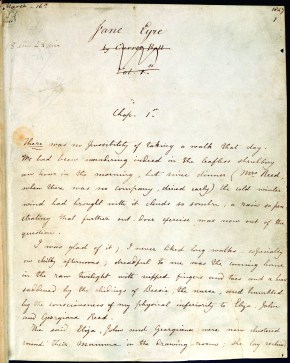 March - 16th
1847
1
Jane Eyre
by Currer Bell
Vol. 1st
Chap. 1st
There was no possibility of taking a walk that day.
We had been wandering indeed in the leafless shrubbery
an hour in the morning, but since dinner (Mrs Reed,
when there was no company, dined early) the cold winter
wind had brought with it clouds so sombre, a rain so pene-
trating that further out-door exercise was now out of the
question.
I was glad of it; I never liked long walks, especially
on chilly afternoons; dreadful to me was the coming home
in the raw twilight with nipped fingers and toes and a heart
saddened by the chidings of Bessie, the nurse, and humbled
by the consciousness of my physical inferiority to Eliza, John
and Georgiana Reed.
The said Eliza, John and Georgiana were now clustered
round their Mamma in the drawing-room; she lay reclined